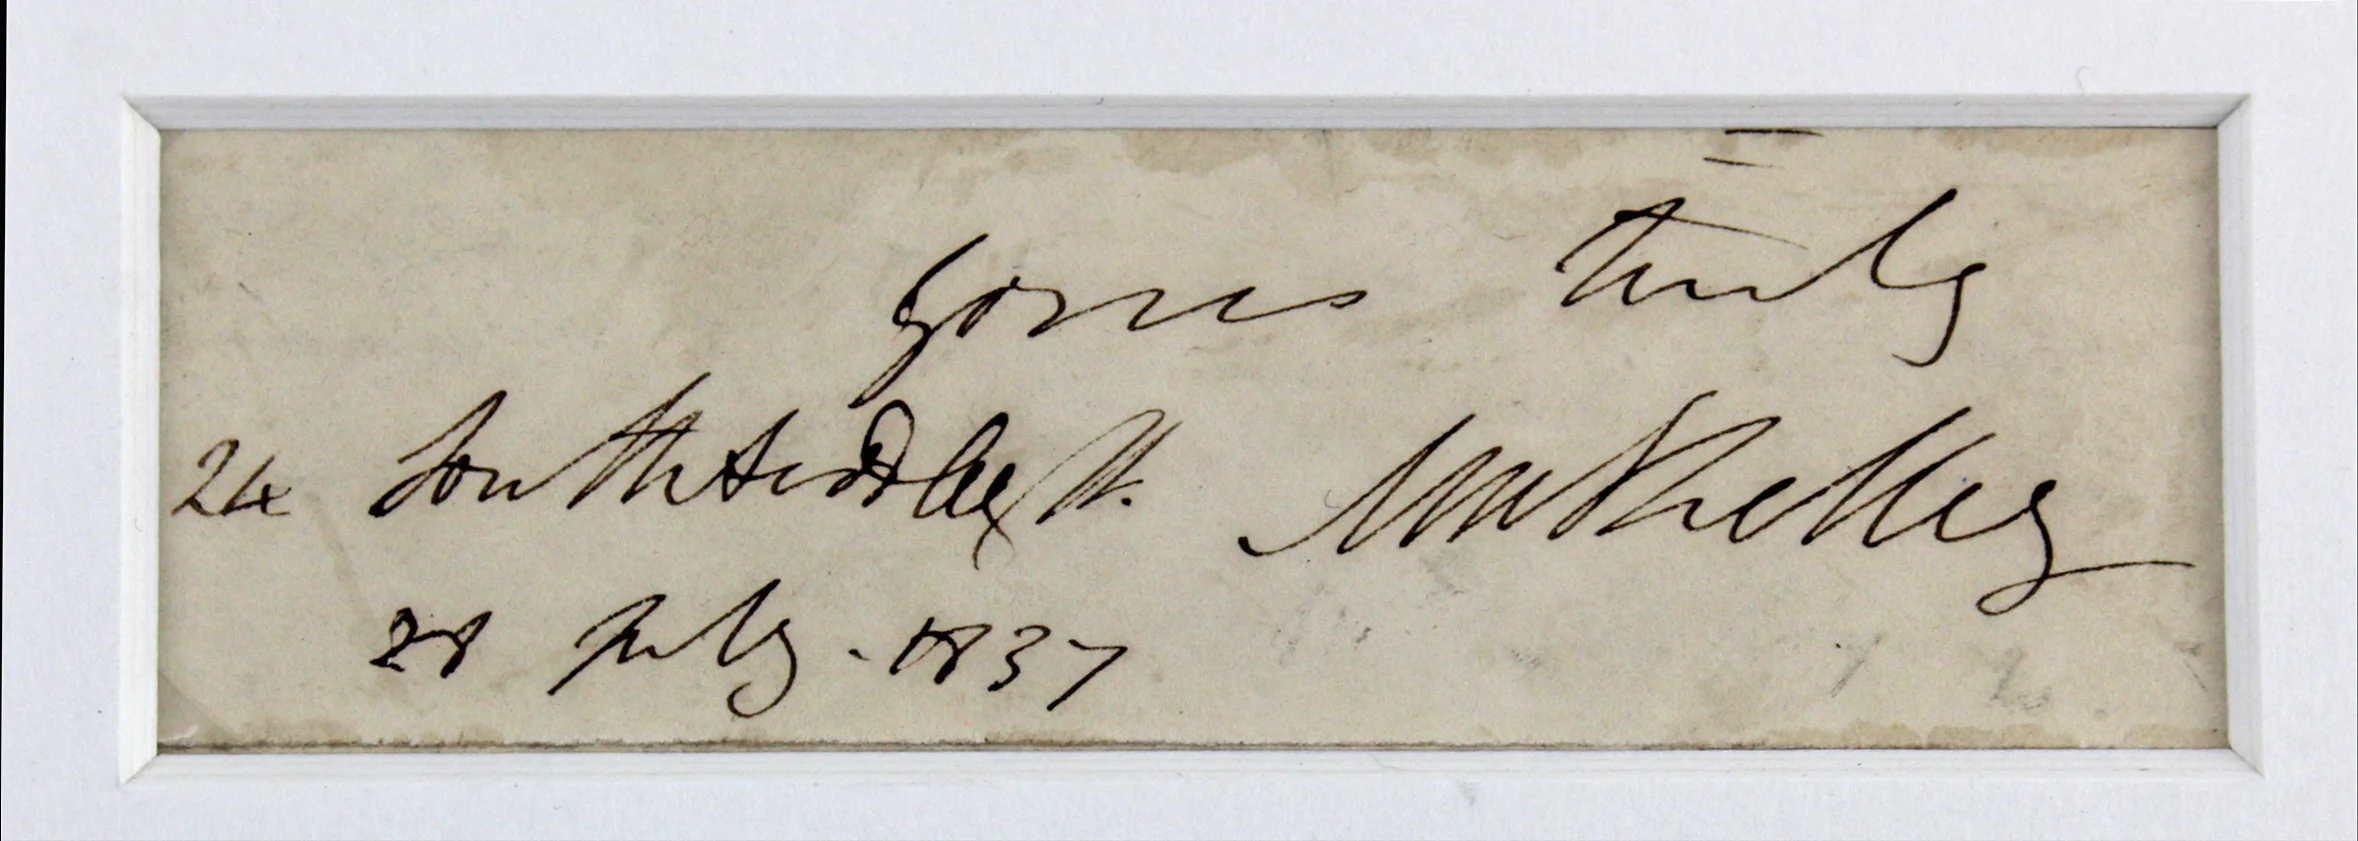 Yours truly
24 South Audley St. MWShelley
28 July - 1837